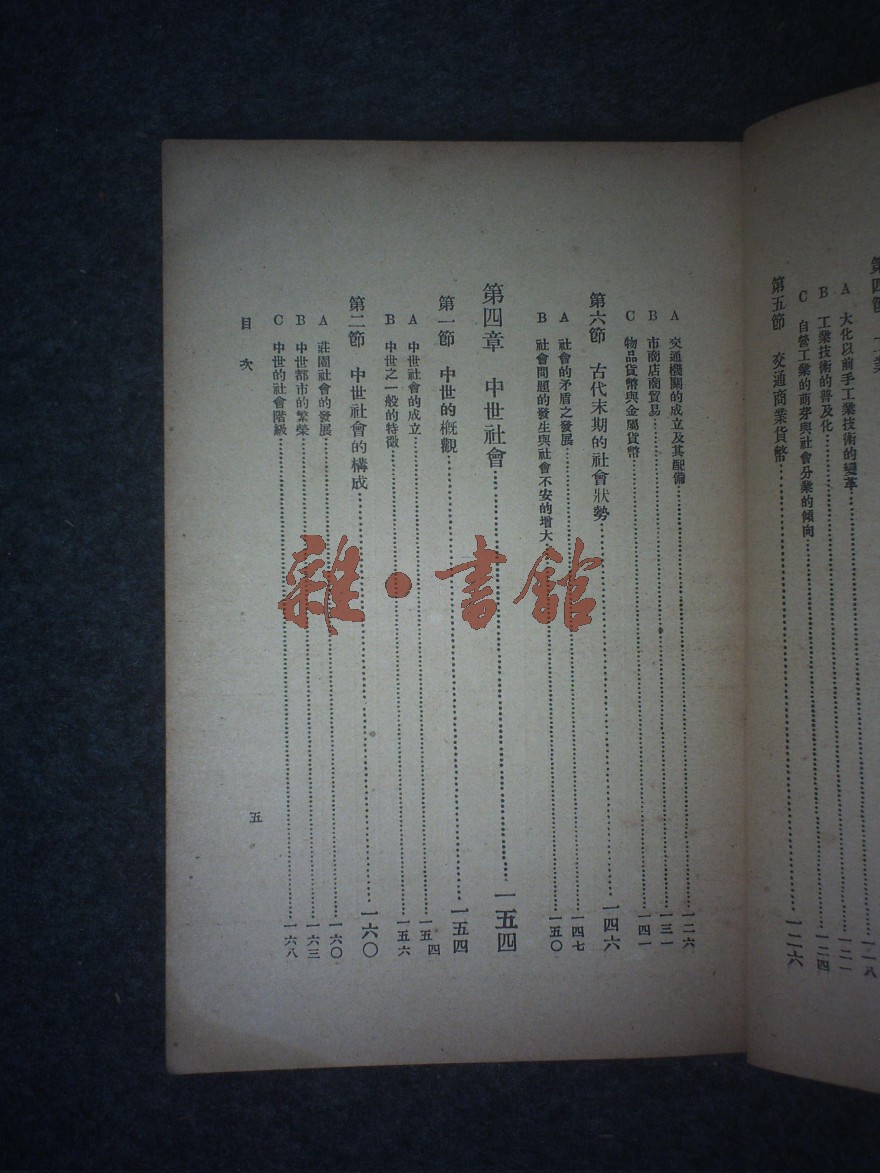 A 大化以前手工業技術的變革 一二一
B 工業技術的普及化 一二四
C 自營工業的萌芽與社會分業的傾向
第五節 交通商業貨幣 一二六
A 交通機關的成立及其配備 一二六
B 市商店商貿易 一三一
C 物品貨幣與金屬貨幣 一四一
第六節 古代末期的社會狀勢 一四六
A 社會的矛盾之發展 一四七
B 社會問題的發生與社會不安的增大 一五〇
第四章 中世社會 一五四
第一節 中世的概觀 一五四
A 中世社會的成立 一五四
B 中世之一般的特徵 一五六
第二節 中世社會的構成 一六〇
A 莊園社會的發展 一六〇
B 中世都市的繁榮 一六三
C 中世的社會階級 一六八
目次
五
雜·書館